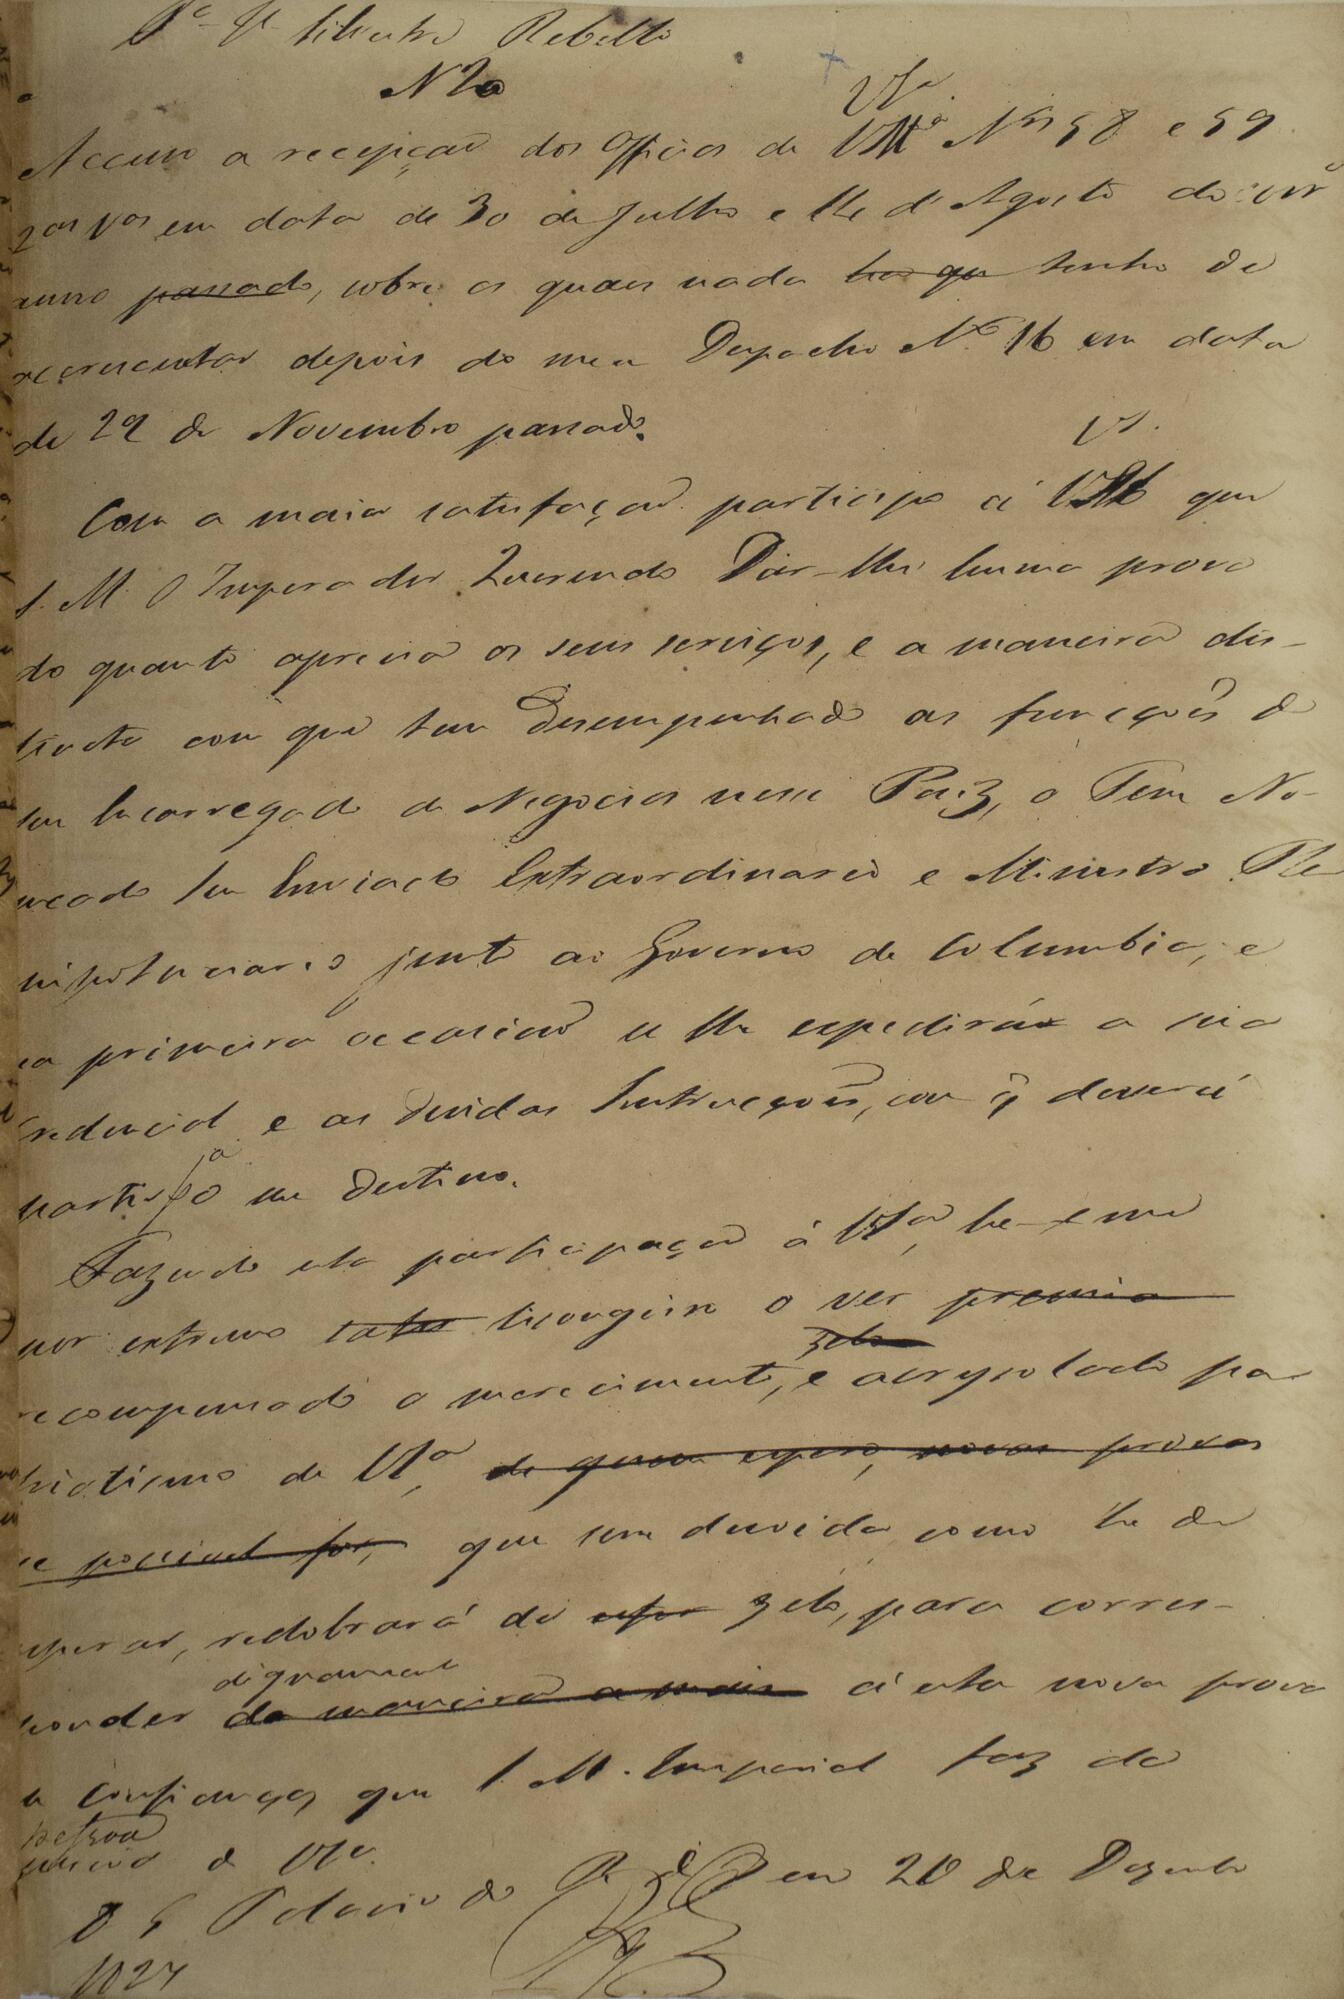 Pª J. Silvestre Rebello
N 20
VSª.
Accuso a recepção dos Officios de VMª Nos 58 e 59
2as Vas em data de 30 de Julho e 14 d'Agosto do corr
anno passado, sobre os quaes nada ha que tenho de
accrescentar depois do meu Despacho Nº 16 em data
de 29 de Novembro passado.
VS.
Com a maior satisfação participo á VM que
S. M. O Imperador Querendo Dar-lhe huma prova
do quanto aprecia os seus serviços, e a maneira dis-
tincta com que tem desempenhado as funcções de
seu Encarregado de Negocios nesse Paiz, o Tem No-
meado Seu Enviado Extraordinario e Ministro Ple
nipotenciario junto ao Governo de Columbia, e
na primeira occasião se lhe expedirá a sua
Credencial e as devidas Instrucções, com q̃ deverá
partir pª o seu destino.
Fazendo esta participação á VSª, he-me
por extremo lisongeiro o ver premia
zelo
recompensado o merecimento, e acrysolado pa
triotismo de VSª, de quem espero, novas provas
se possivel for, que sem duvida, como he de
esperar, redobrará de zelo, para corres-
dignamente
ponder de maneira a mais á esta nova prova
de confiança, que S. M. Imperial faz da
pessoa
de VSª.
D G Palacio do Rº de Jº em 20 de Dezembro
1827